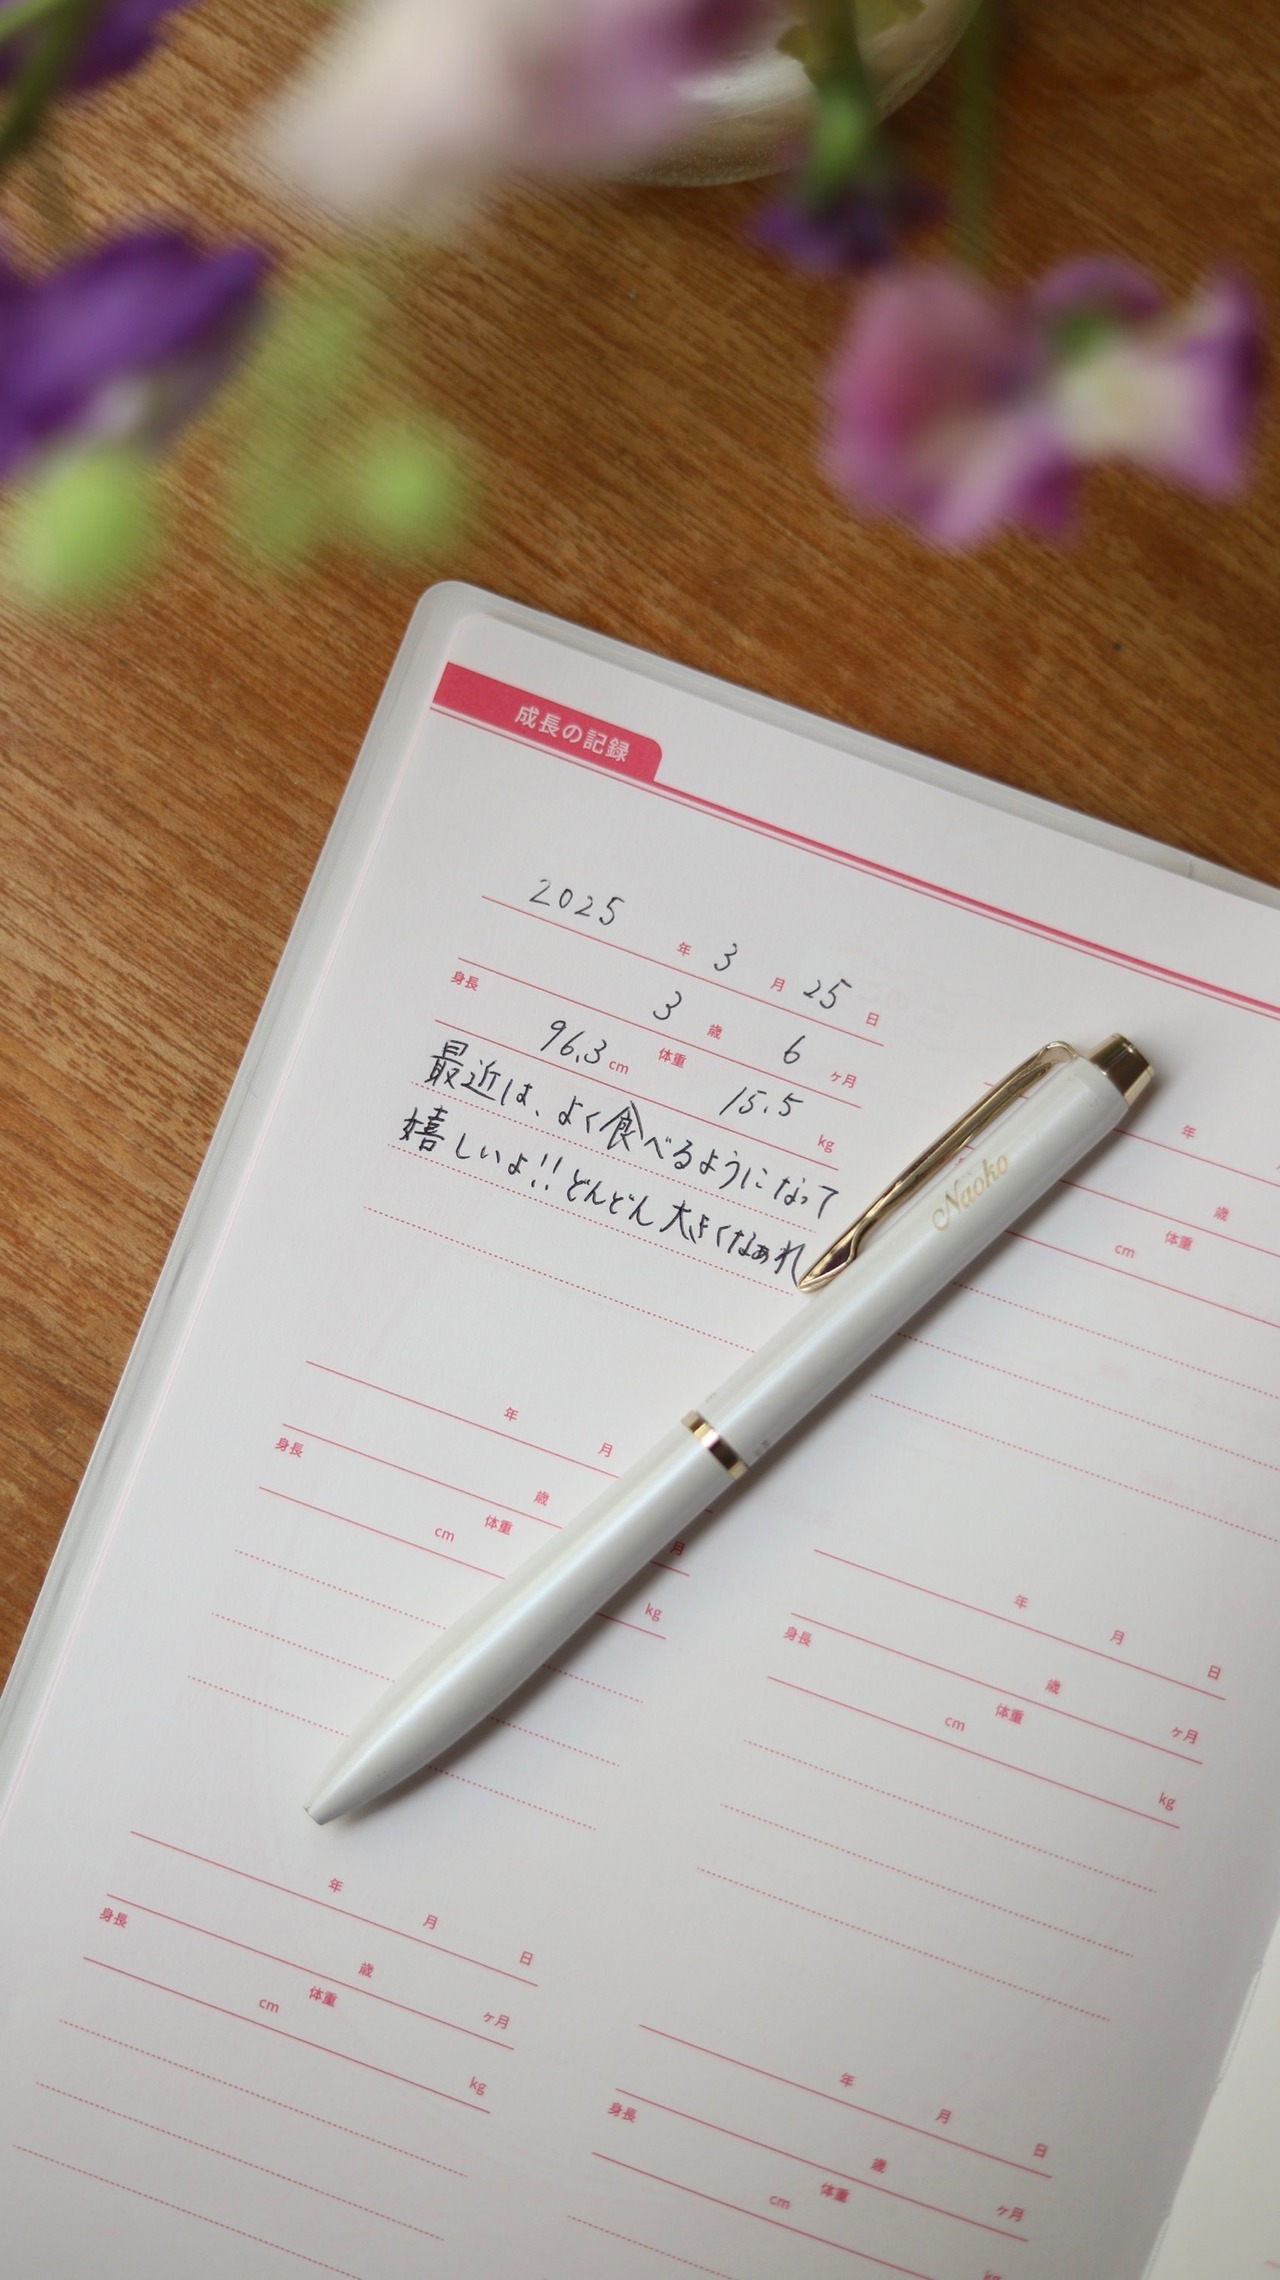 成長の記録
2025年3月25日
3歳6ヶ月
身長96.3cm 体重15.5kg
最近は、よく食べるようになって
嬉しいよ!!どんどん大きくなあれ
Naoko
年
歳
cm 体重
年 月
歳 月
身長 cm 体重 kg
年 月 日
歳 ヶ月
身長 cm 体重 kg
年 月 日
歳 ヶ月
身長 cm 体重 kg
年 月 日
歳 ヶ月
身長 cm 体重 kg